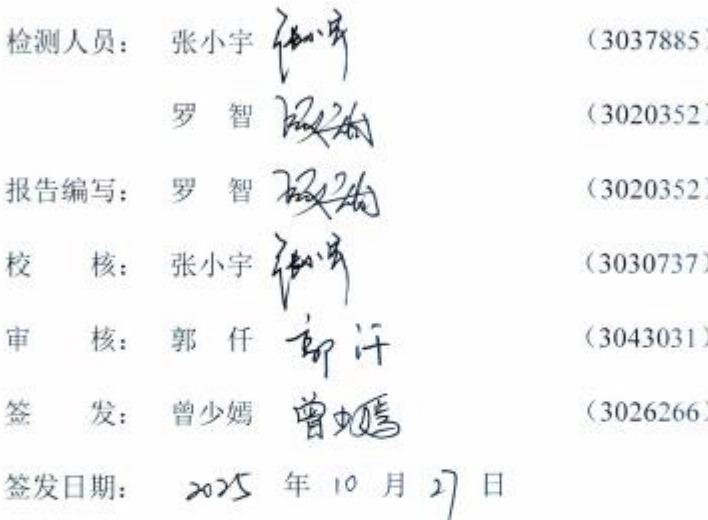 检测人员： 张小宇 张小宇 （3037885）
罗 智 （3020352）
报告编写： 罗 智 （3020352）
校 核： 张小宇 张小宇 （3030737）
审 核： 郭 仟 郭仟 （3043031）
签 发： 曾少嫣 曾少嫣 （3026266）
签发日期： 2025 年 10 月 27 日